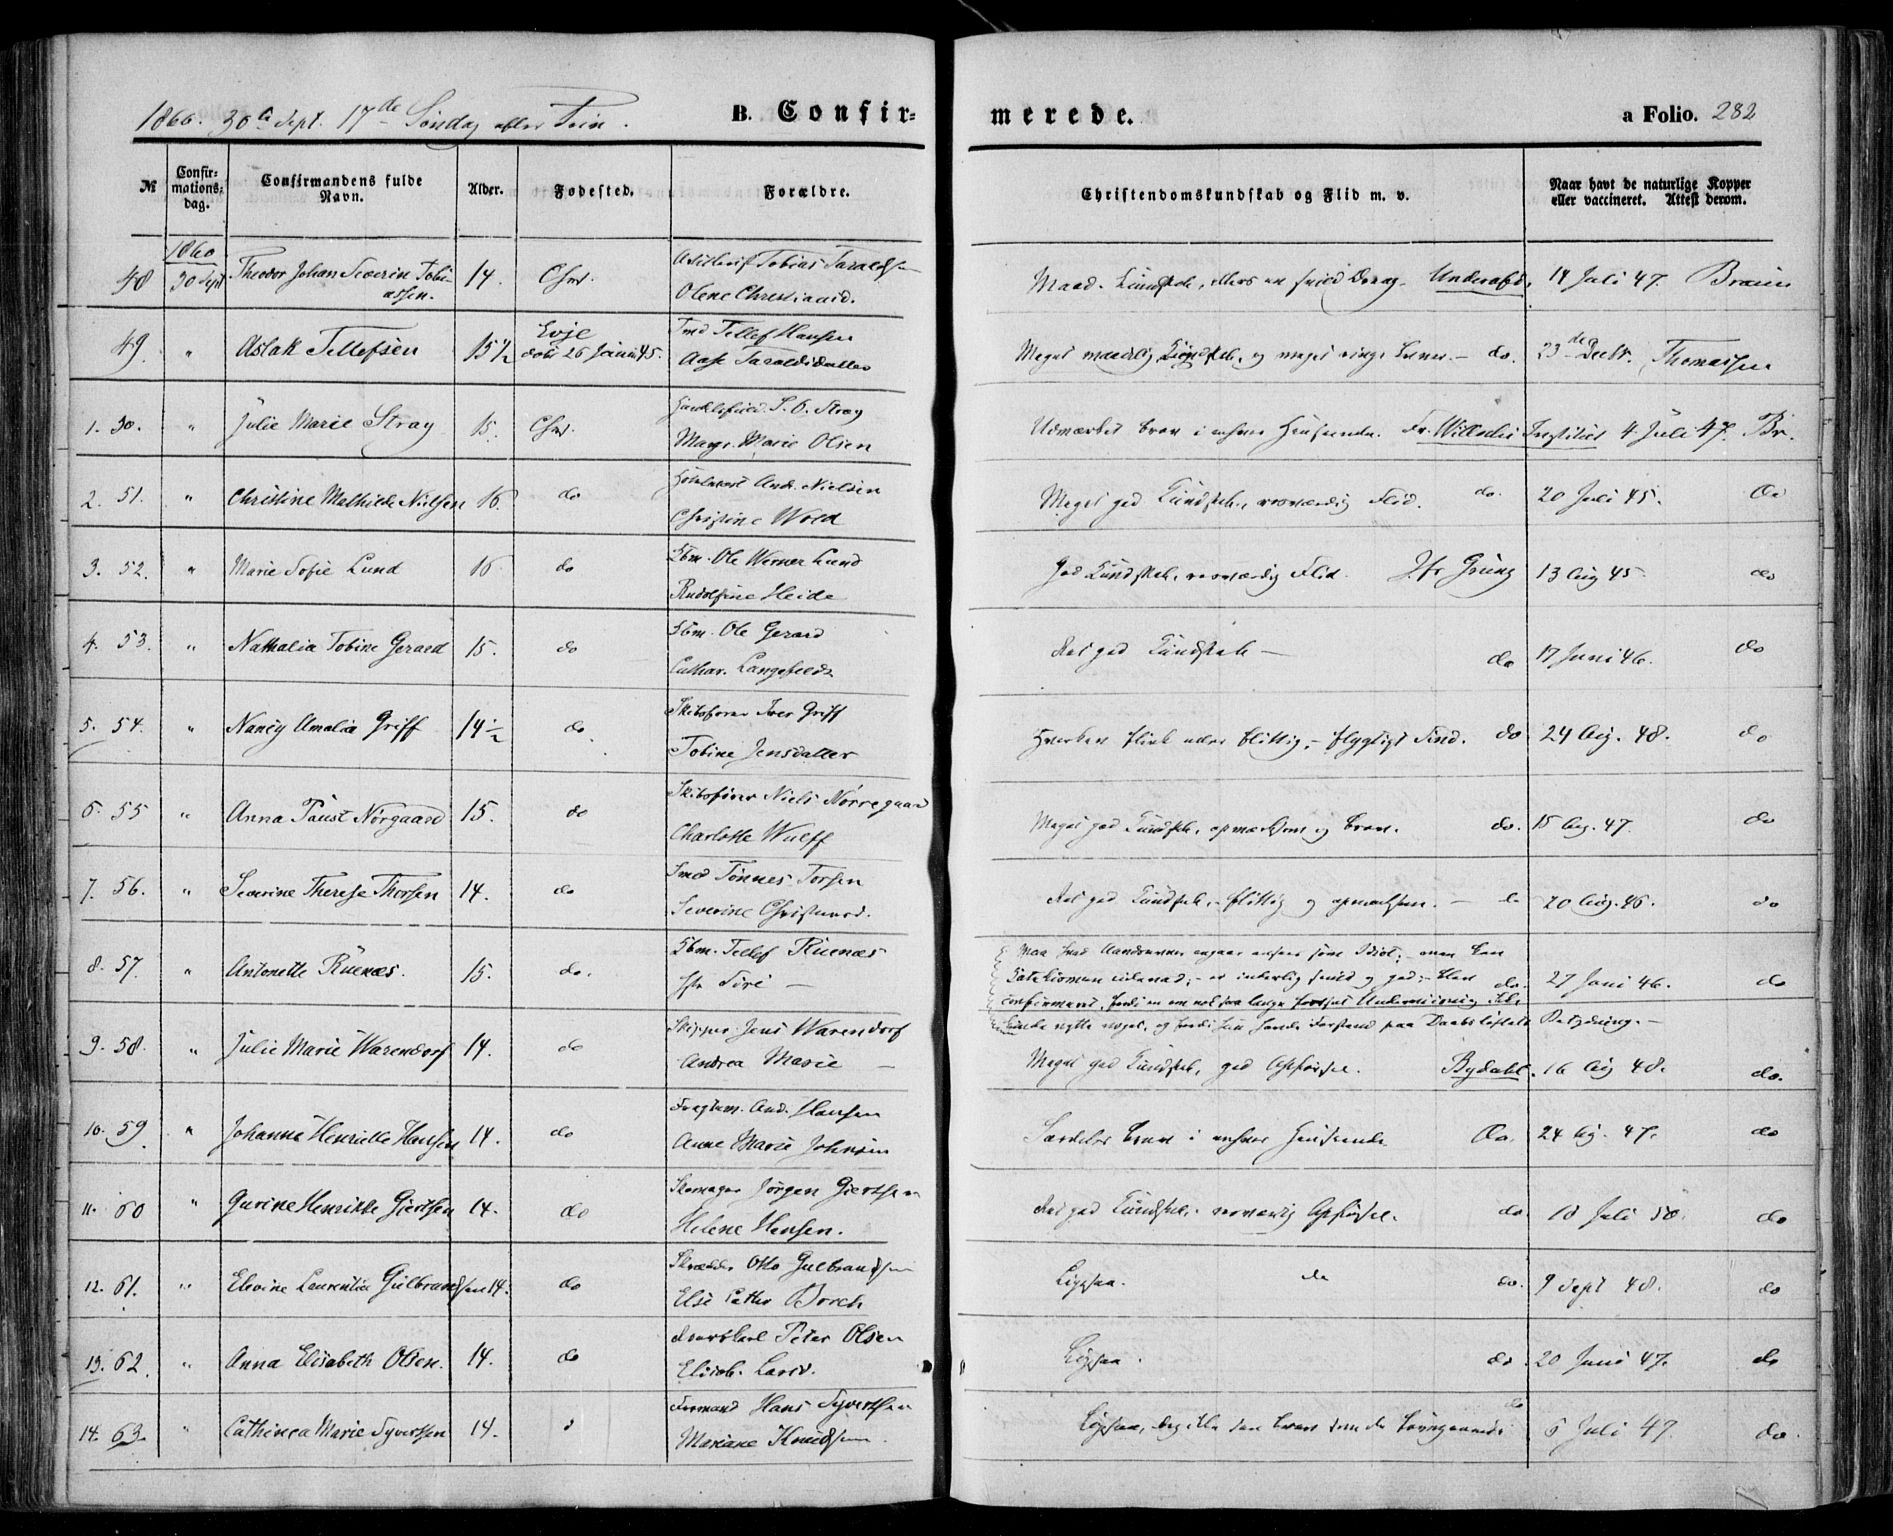 1860. 30te Sept. 17de Søndag efter Trin.
B. Confirmerede.
a Folio. 282
№ | Confirmations-dag. | Confirmandens fulde Navn. | Alder. | Fødested. | Forældre. | Christendomskundskab og Flid m. v. | Naar havt de naturlige Kopper eller vaccineret. Attest derom.
48 | 1860 30 Sept | Theodor Johan Severin Tobiassen. | 14. | Chrs. | Tobias Taraldsen
Olene Christiansd. | Maad. Kundskab, ellers en | 14 Juli 47. Bruun
49. | " | Aslak Tellefsen | 15½ | Evje
døbt 26 Januar 45. | Smd Tellef Hansen
Aase Taraldsdatter | Meget maadelig Kundskab, og meget ringe Evner. — do. | 23de Decbr. Thomassen
1. 50. | " | Julie Marie Stray | 15. | Chrs. | S. O. Stray
Margr. Marie Olsen | Udmærket brav i enhver Henseende. Fr. Willochs Institut | 4 Juli 47. Br.
2. 51. | " | Christine Mathilde Nielsen | 16. | do | And. Nielsen
Christine Wold | Meget god Kundskab, rosværdig Flid. do. | 20 Juli 45. Do
3. 52. | " | Marie Sofie Lund | 16. | do | Sbm. Ole Werner Lund
Rudolfine Heide | God Kundskab, rosværdig Flid. | 13 Aug 45. do
4. 53. | " | Nathalia Tobine Gerard | 15. | do | Sbm. Ole Gerard
Cathar. Langefeldt | Ret god Kundskab — do | 17 Juni 46. do
5. 54. | " | Nancy Amalia Griff | 14½ | do. | Skibsfører Iver Griff
Tobine Jensdatter | Hverken flink eller flittig, – flygtigt Sind. do | 24 Aug. 48. do
6. 55 | " | Anna Faust Nørgaard | 15. | do | Skibsfører Niels Nørregaard
Charlotte Wulff | Meget god Kundskab, opmærksom og brav. do. | 15 Aug. 47. do
7. 56. | " | Severine Therese Thorsen | 14. | do | Smed Tønnes Torsen
Severine Christensd. | Ret god Kundskab, – flittig og opmærksom. — do | 20 Aug. 46. do
8. 57. | " | Antonette Ruenæs. | 15. | do. | Sbm. Tellef Ruenæs
Siri — | Maa hvad Aandsevner angaar ansees som Idiot; – men kan
Katekismen udenad; – er inderlig from og god; – blev do.
confirmeret, fordi en om nok saa lange fortsat Underviisning ikke
kunde nytte noget, og fordi hun havde Forstand paa Daabsløftets Betydning. — | 27 Juni 46. do
9. 58. | " | Julie Marie Warendorf | 14. | do | Skipper Jens Warendorf
Andrea Marie — | Meget god Kundskab, god Opførsel. Bydahl. | 16 Aug 48. do.
10. 59. | " | Johanne Henriette Hansen | 14. | do | And. Hansen
Anne Marie Johnsen | Særdeles brav i enhver Henseende Do. | 24 Aug. 47. do
11. 60 | " | Gurine Henrikke Giertsen | 14. | do | Skomager Jørgen Giertsen
Helene Hansen. | Ret god Kundskab, rosværdig Opførsel. do. | 18 Juli 50. do
12. 61. | " | Elevine Laurentia Gulbrandsen | 14. | do | Skrædder Otto Gulbrandsen
Else Cathr Borch | Ligesaa. do do. | 9 Sept 48. do
13. 62. | " | Anna Elisabeth Olsen. | 14. | do | Peter Olsen
Elisab. Larsd. | Ligesaa. do | 20 Juni 47. do
14. 63. | " | Cathinca Marie Syvertsen | 14. | d | Formand Hans Syvertsen
Mariane Knudsen. | Ligesaa, dog ikke saa brav som de foregaaende do | 6 Juli 47. do.